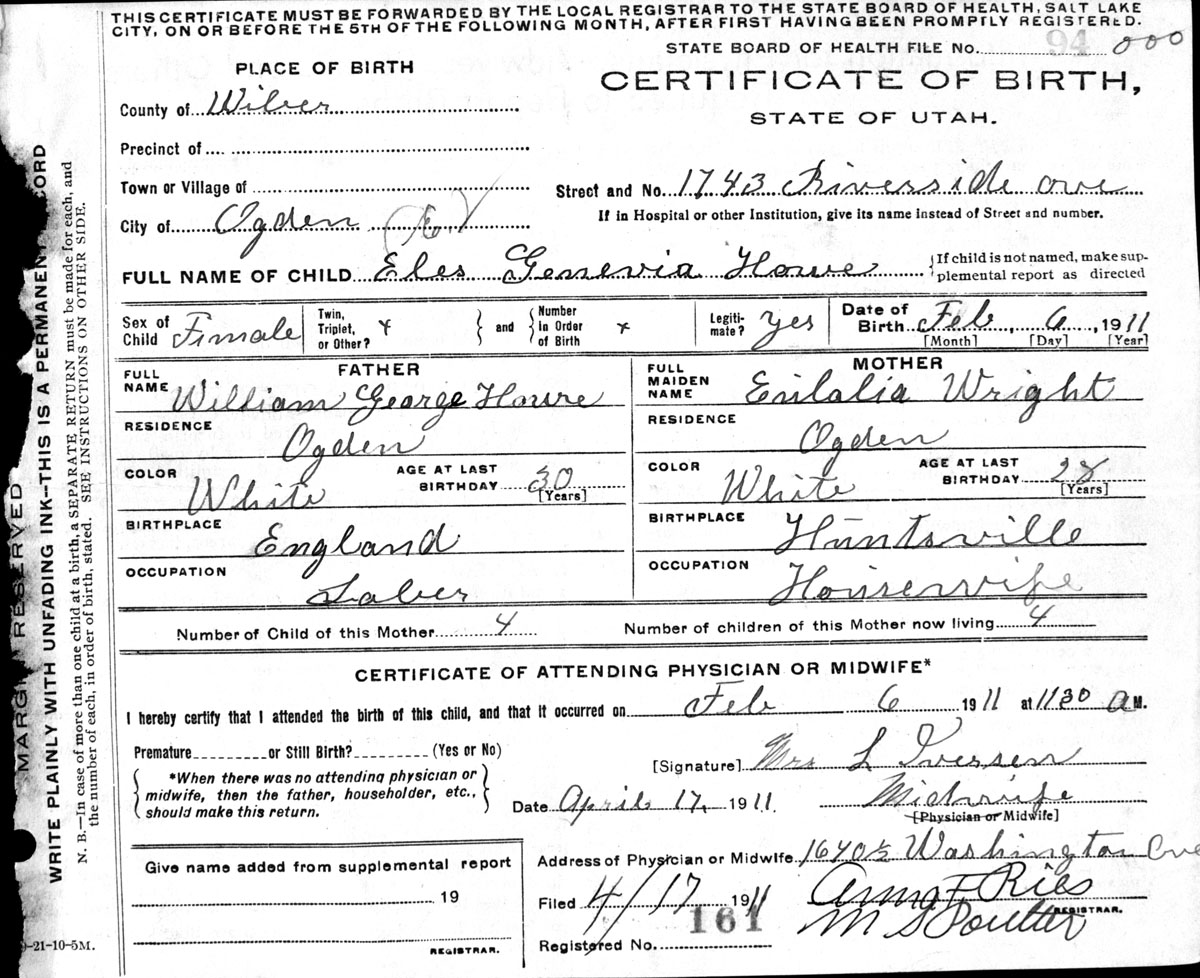 THIS CERTIFICATE MUST BE FORWARDED BY THE LOCAL REGISTRAR TO THE STATE BOARD OF HEALTH, SALT LAKE
CITY, ON OR BEFORE THE 5TH OF THE FOLLOWING MONTH, AFTER FIRST HAVING BEEN PROMPTLY REGISTERED.
STATE BOARD OF HEALTH FILE No. 94 000
PLACE OF BIRTH
CERTIFICATE OF BIRTH,
STATE OF UTAH.
County of Wiber
Precinct of
Town or Village of
Street and No. 1743 Riverside ave
City of Ogden
If in Hospital or other Institution, give its name instead of Street and number.
FULL NAME OF CHILD Eles Genevia Howe
If child is not named, make sup-
plemental report as directed
Sex of Child Fimale
Twin, Triplet, or Other?
and
Number in Order of Birth
Legiti-mate? yes
Date of Birth Feb 6, 1911
[Month] [Day] [Year]
FATHER
MOTHER
FULL NAME William George Howe
FULL MAIDEN NAME Enilalia Wright
RESIDENCE Ogden
RESIDENCE Ogden
COLOR White
AGE AT LAST BIRTHDAY 30 [Years]
COLOR White
AGE AT LAST BIRTHDAY 28 [Years]
BIRTHPLACE England
BIRTHPLACE Huntsville
OCCUPATION Laber
OCCUPATION Housewife
Number of Child of this Mother 4
Number of children of this Mother now living 4
CERTIFICATE OF ATTENDING PHYSICIAN OR MIDWIFE*
I hereby certify that I attended the birth of this child, and that it occurred on Feb 6 1911 at 1130 a M.
Premature or Still Birth? (Yes or No)
[Signature] Mrs L Iversen
*When there was no attending physician or
midwife, then the father, householder, etc.,
should make this return.
Date April 17, 1911
Midwife
[Physician or Midwife]
Give name added from supplemental report
19
REGISTRAR.
Address of Physician or Midwife 1640½ Washington Ave
Filed 4/17 1911
Anna F Ries
M S Poulter
REGISTRAR.
161
Registered No.
-21-10-5M.
MARGIN RESERVED
WRITE PLAINLY WITH UNFADING INK—THIS IS A PERMANENT
N. B.—In case of more than one child at a birth, a SEPARATE RETURN must be made for each, and
the number of each, in order of birth, stated. SEE INSTRUCTIONS ON OTHER SIDE.